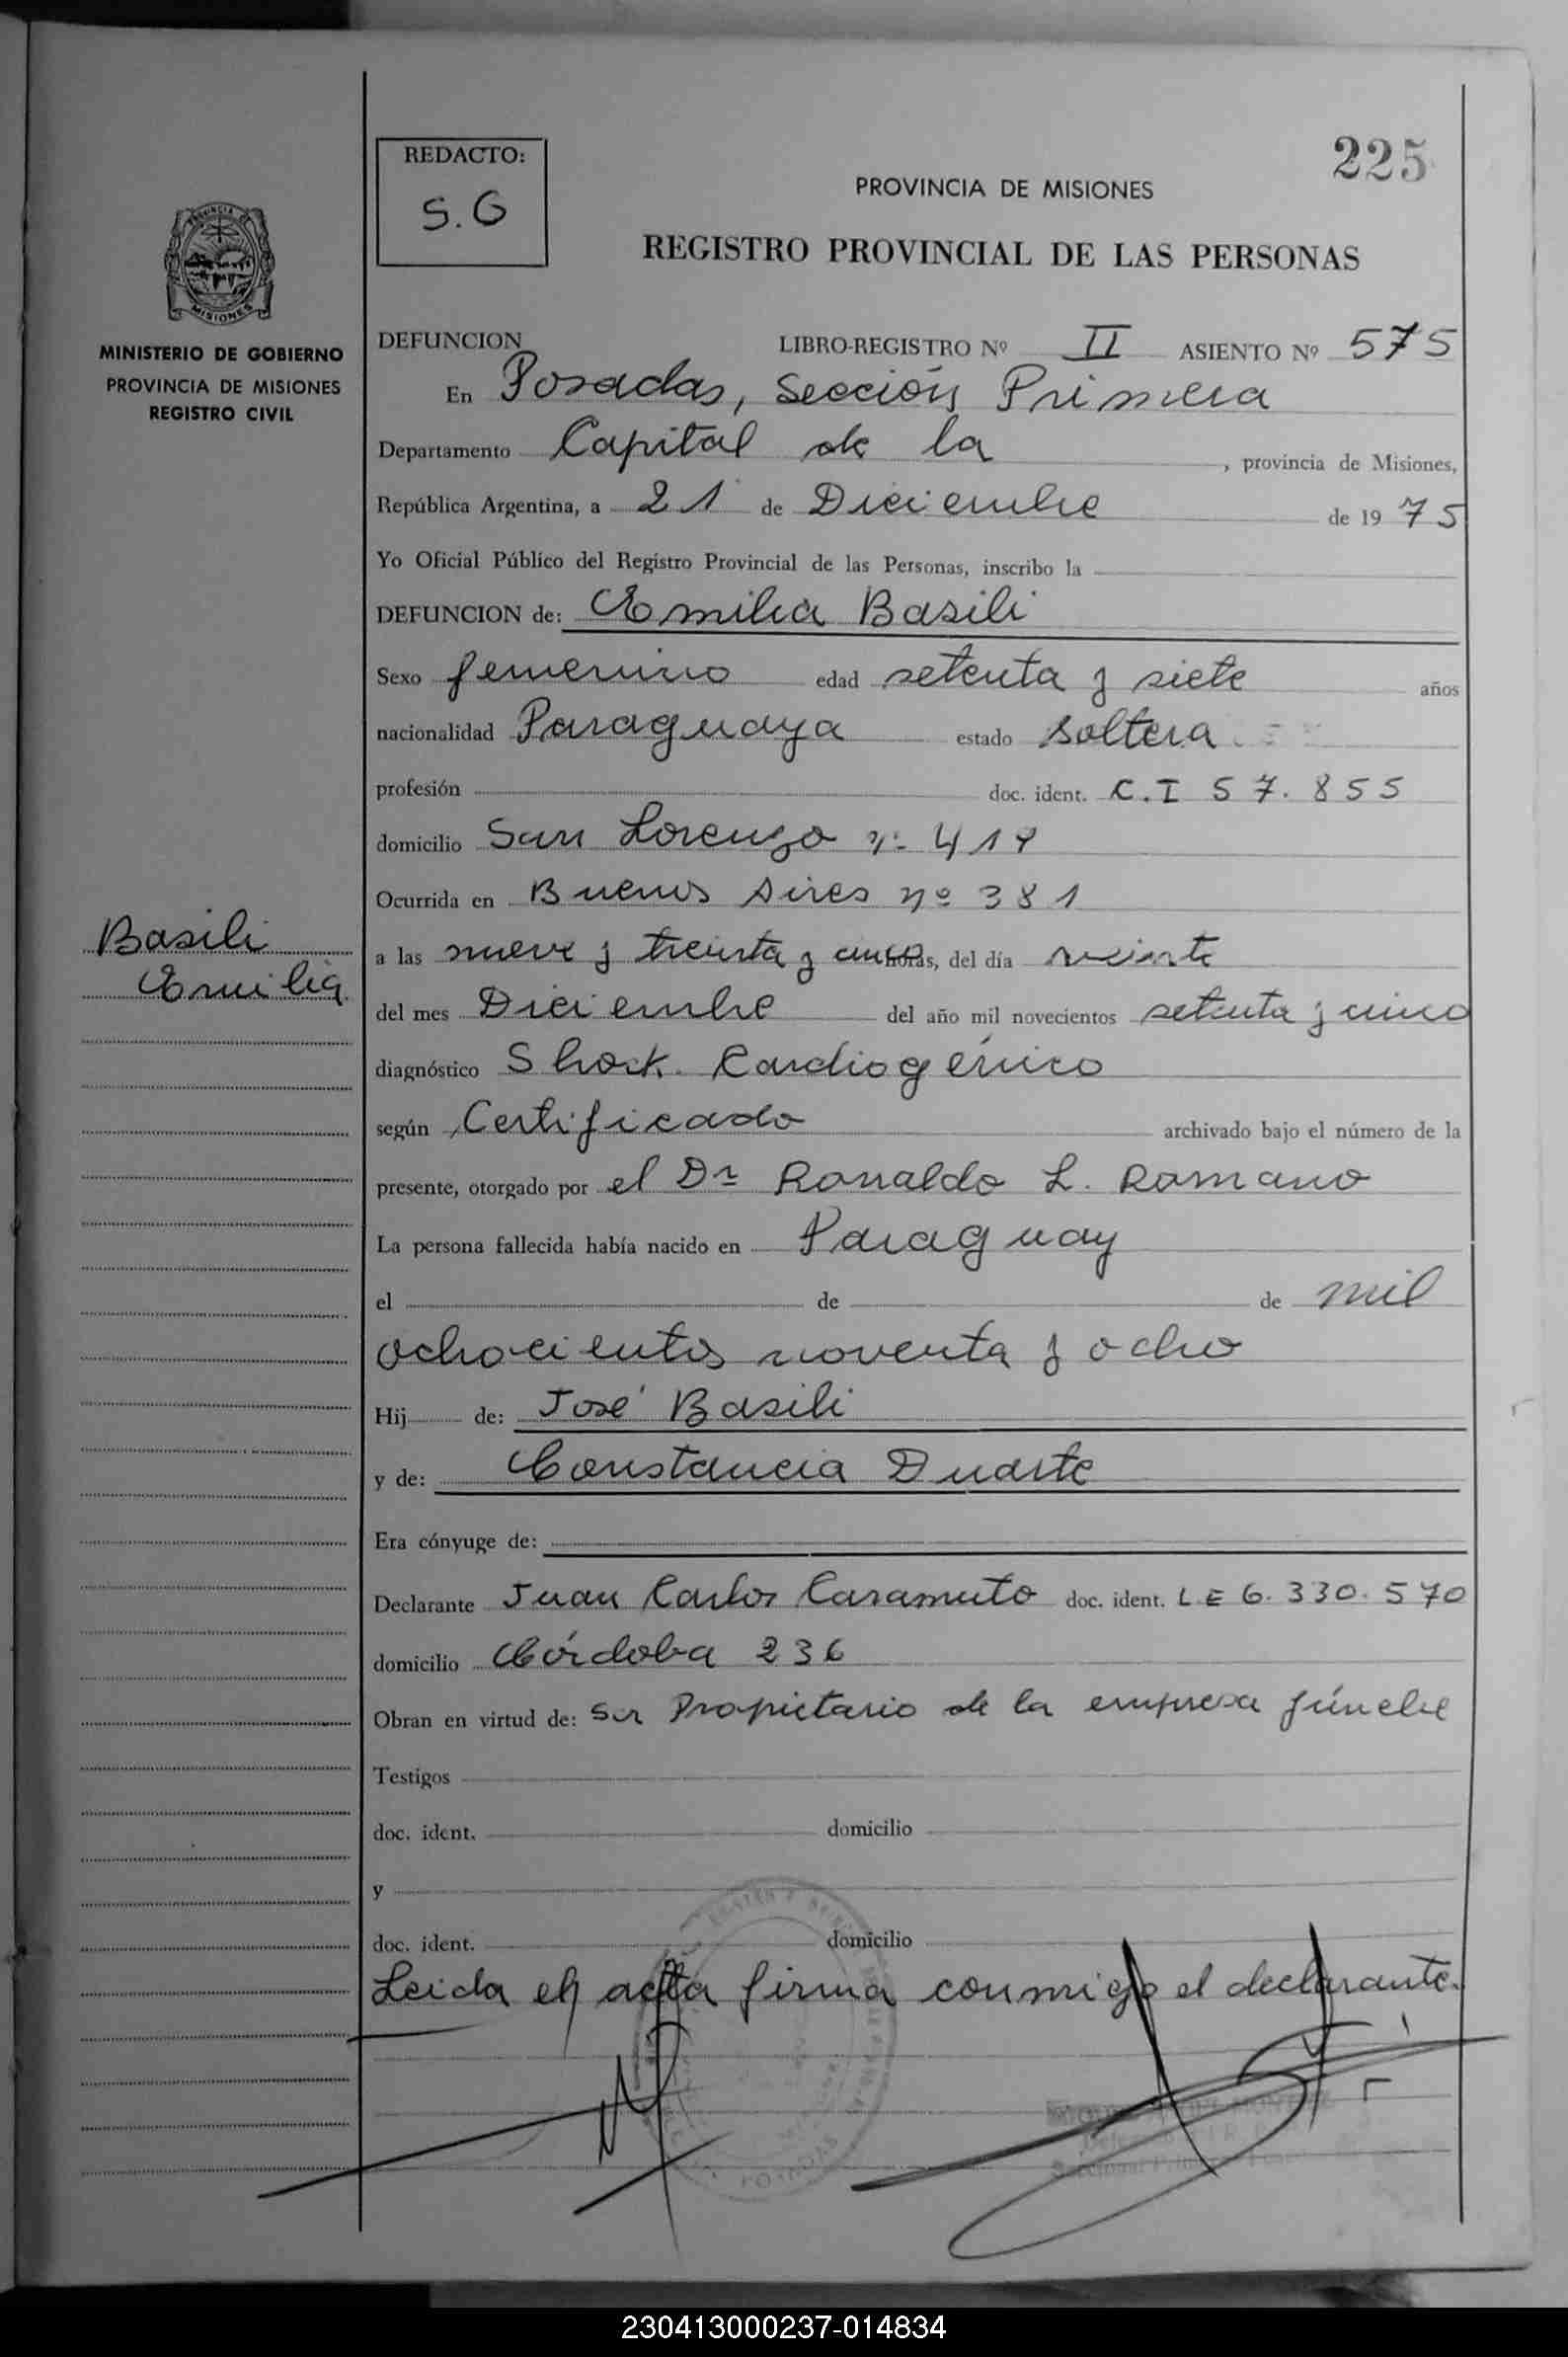 225
REDACTO:
S.G
PROVINCIA DE MISIONES
REGISTRO PROVINCIAL DE LAS PERSONAS
MISIONES
MINISTERIO DE GOBIERNO
PROVINCIA DE MISIONES
REGISTRO CIVIL
DEFUNCION LIBRO-REGISTRO Nº II ASIENTO Nº 575
En Posadas, Sección Primera
Departamento Capital de la , provincia de Misiones,
República Argentina, a 21 de Diciembre de 1975
Yo Oficial Público del Registro Provincial de las Personas, inscribo la
DEFUNCION de: Emilia Basili
Sexo femenino edad setenta y siete años
nacionalidad Paraguaya estado soltera
profesión doc. ident. C.I 57.855
domicilio San Lorenzo nº
Ocurrida en Buenos Aires nº 381
Basili
Emilia
a las nueve y treinta y cinco horas, del día veinte
del mes Diciembre del año mil novecientos setenta y cinco
diagnóstico Shock Cardiogénico
según Certificado archivado bajo el número de la
presente, otorgado por el Dr Ronaldo L. Romano
La persona fallecida había nacido en Paraguay
el de de mil
ochocientos noventa y ocho
Hij de: José Basili
y de: Constancia Duarte
Era cónyuge de:
Declarante Juan Carlos Caramuto doc. ident. L E 6.330.570
domicilio Córdoba 236
Obran en virtud de: Ser Propietario de la empresa fúnebre
Testigos
doc. ident. domicilio
y
doc. ident. domicilio
Leida el acta firma conmigo el declarante.
POSADAS
230413000237-014834